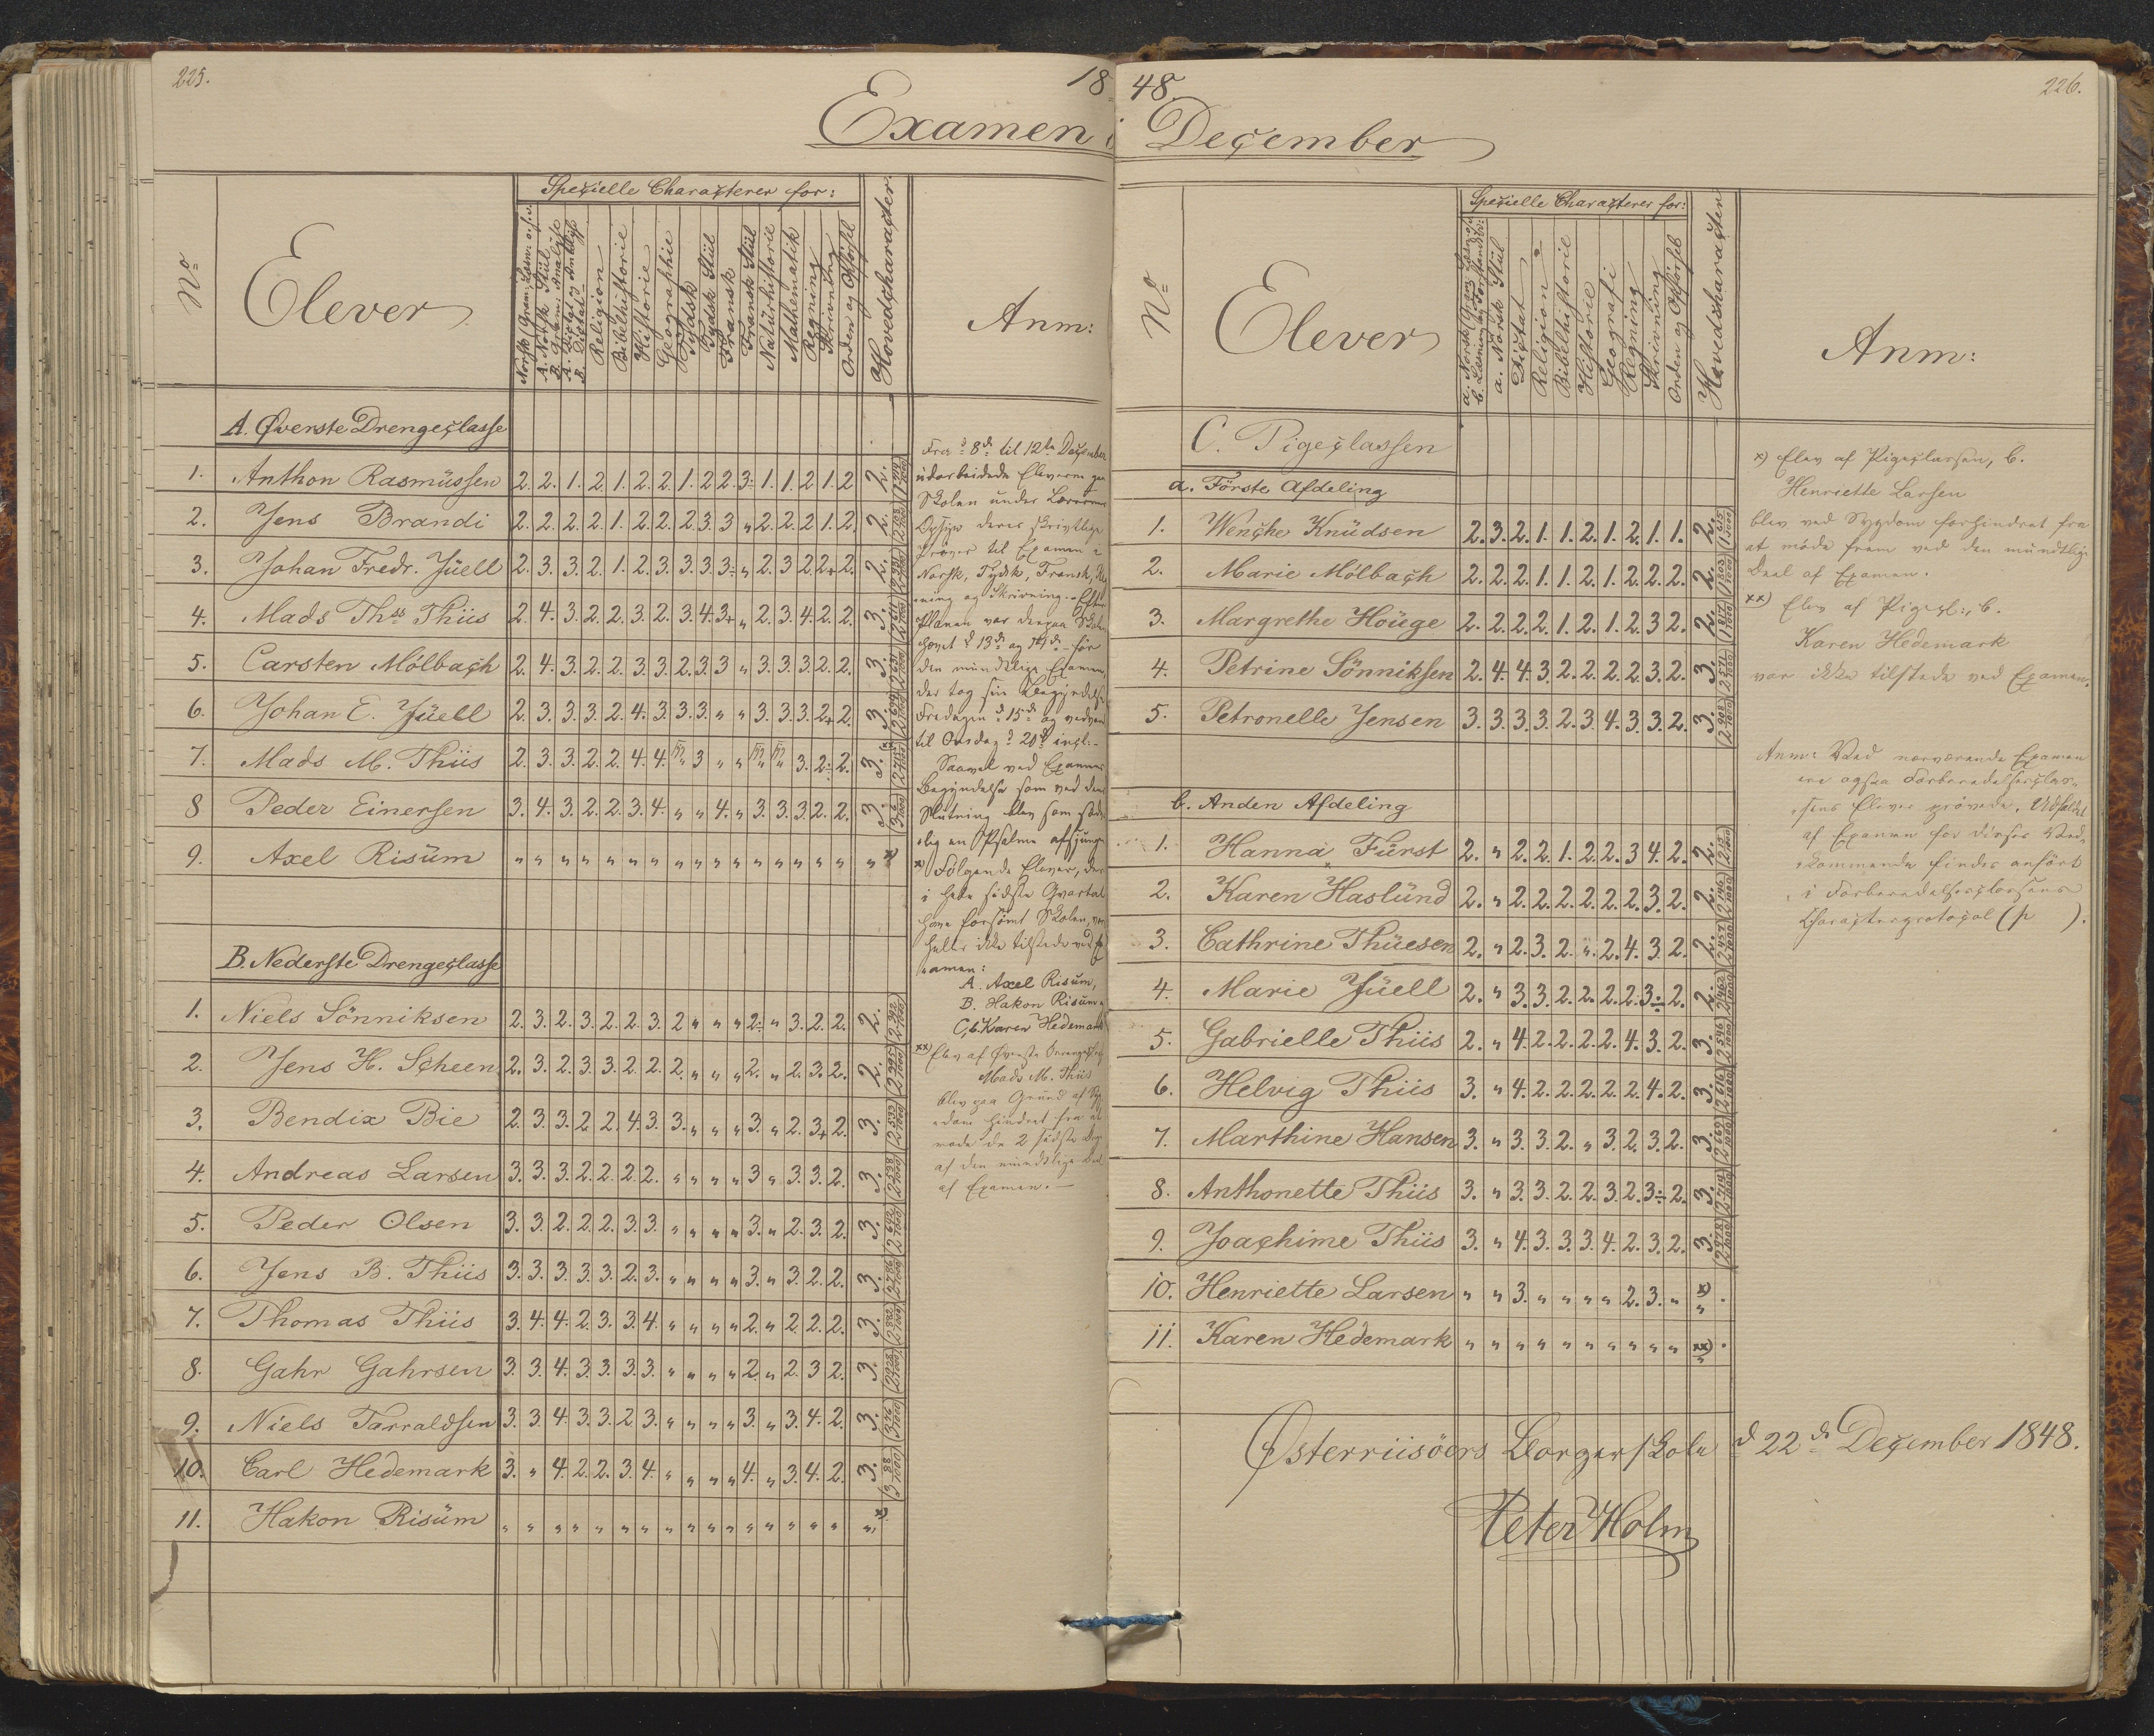 225.
18
Examen i
Specielle Characterer for:
No
Elever
Religion
Bibelhistorie
Historie
Geographie
Tydsk
Tydsk Stiil
Fransk
Fransk Stiil
Naturhistorie
Mathematik
Regning
Skrivning
Orden og Opförsel
Hovedcharacter.
Anm:
A. Øverste Drengeclasse
1. Anthon Rasmüssen 2. 2. 1. 2. 1. 2. 2. 1. 2 2 3÷ 1. 1. 2 1. 2 2.
2. Jens Brandi 2. 2. 2. 2. 1. 2. 2. 2. 3. 3 „ 2. 2. 2 1. 2. 2.
3. Johan Fredr. Jüell 2. 3. 3. 2. 1. 2. 3. 3. 3. 3÷ „ 2. 3. 2 2+ 2. 2.
4. Mads Ths Thiis 2. 4. 3. 2. 2. 3. 2. 3. 4. 3+ „ 2. 3. 4. 2. 2. 3.
5. Carsten Mölbach 2. 4. 3. 2. 2. 3. 3. 2. 3. 3 „ 3. 3. 3. 2. 2. 3.
6. Johan E. Jüell 2. 3. 3. 3. 2. 4. 3. 3. 3. „ „ 3. 3. 3. 2+ 2. 3.
7. Mads M. Thiis 2. 3. 3. 2. 2. 4. 4. 3 „ „ 3. 2÷ 2. 3.
8 Peder Einersen 3. 4. 3. 2. 2. 3. 4. „ „ 4. „ 3. 3. 3. 2. 2. 3.
9. Axel Risüm „ „ „ „ „ „ „ „ „ „ „ „ „ „ „ „ „ x)
B. Nederste Drengeclasse
1. Niels Sönniksen 2. 3. 2. 3. 2. 2. 3. 2 „ „ „ 2÷ „ 3. 2. 2. 2.
2. Jens H. Scheen 2. 3. 2. 3. 3. 2. 2. 2. „ „ „ 2. „ 2. 3. 2. 2.
3. Bendix Bie 2. 3. 3. 2. 2. 4. 3. 3. „ „ „ 3. „ 2. 3+ 2. 3.
4. Andreas Larsen 3. 3. 3. 2. 2. 2. 2. „ „ „ „ 3 „ 3. 3. 2. 3.
5. Peder Olsen 3. 3. 2. 2. 2. 3. 3. „ „ „ „ 3. „ 2. 3. 2. 3.
6. Jens B. Thiis 3. 3. 3. 3. 3. 2. 3. „ „ „ „ 3. „ 3. 2. 2. 3.
7. Thomas Thiis 3. 4. 4. 2. 3. 3. 4. „ „ „ „ 2. „ 2. 2. 2. 3.
8. Gahr Gahrsen 3. 3. 4. 3. 3. 3. 3. „ „ „ „ 2. „ 2. 3 2. 3.
9. Niels Tarraldsen 3. 3. 4. 3. 3. 2. 3. „ „ „ „ 3. „ 3. 4. 2. 3.
10. Carl Hedemark 3. „ 4. 2. 2. 3. 4. „ „ „ „ 4. „ 3. 4. 2. 3.
11. Hakon Risüm „ „ „ „ „ „ „ „ „ „ „ „ „ „ „ „ „ x
Fra d 8de til 12te December
udarbeidede Eleverne paa
Skolen under Lærernes
Opsyn deres skrivtlige
Prøver til Examen i
Norsk, Tydsk, Fransk,
ning og Skrivning.
Planen var derpaa
d 13de og 14de før
den mundtlige Examen,
der tog sin Begyndelse
Fredagen d 15de og vedvarede
til Onsdag d 20de incl:
Saavel ved Examens
Begyndelse som ved dens
Slutning blev som
lig en Psalme afsjunge
x) Følgende Elever, der
i hele sidste Qvartal
have forsömt Skolen, var
heller ikke tilstede ved Ex
amen:
A. Axel Risum,
B. Hakon Risüm
C, b. Karen Hedemark
xx) Elev af Øverste
Mads M. Thiis
blev paa Grund af Syg
dom hindret fra at
møde de 2 sidste Dage
af den mundtlige Deel
af Examen.
48.
226.
December
Specielle Characterer for:
No
Elever
a. Norsk Stiil
Dictat
Religion
Bibelhistorie
Historie
Geografi
Regning
Skrivning
Orden og Opförsel
Hovedcharacter
Anm:
C. Pigeclassen
a. Förste Afdeling
1. Wenche Knüdsen 2. 3. 2. 1. 1. 2. 1. 2. 1. 1. 2.
2. Marie Mölbach 2. 2. 2. 1. 1. 2. 1. 2. 2. 2. 2.
3. Margrethe Höuge 2. 2. 2. 2. 1. 2. 1. 2. 3 2. 2.
4. Petrine Sönniksen 2. 4. 4. 3. 2. 2. 2. 2. 3. 2. 3.
5. Petronelle Jensen 3. 3. 3. 3. 2. 3. 4. 3. 3. 2. 3.
b. Anden Afdeling
1. Hanna Fürst 2. „ 2. 2. 1. 2. 2. 3 4. 2. 2.
2. Karen Haslünd 2. „ 2. 2. 2. 2. 2. 2. 3. 2. 2.
3. Cathrine Thüesen 2. „ 2. 3. 2. „ 2. 4. 3. 2. 2.
4. Marie Jüell 2. „ 3. 3. 2. 2. 2. 2. 3÷ 2. 2.
5. Gabrielle Thiis 2. „ 4. 2. 2. 2. 2. 4. 3. 2. 3.
6. Helvig Thiis 3. „ 4. 2. 2. 2. 2. 2. 4. 2. 3.
7. Marthine Hansen 3. „ 3. 3. 2. „ 3. 2. 3. 2. 3.
8. Anthonette Thiis 3. „ 3. 3. 2. 2. 3. 2. 3÷ 2. 3.
9. Joachime Thiis 3. „ 4. 3. 3. 3. 4. 2. 3. 2. 3.
10. Henriette Larsen „ „ 3. „ „ „ „ 2. 3. „ x)
11. Karen Hedemark „ „ „ „ „ „ „ „ „ „ xx)
x) Elev af Pigeclassen, b.
Henriette Larsen
blev ved Sygdom forhindret fra
at möde frem ved den mündtlige
Deel af Examen.
xx) Elev af Pigecl:, b.
Karen Hedemark
var ikke tilstede ved Examen.
Anm: Ved nærværende Examen
ere ogsaa Forberedelsesclas-
sens Elever prövede. Udfaldet
af Examen for disses Ved-
kommende findes anført
i Forberedelsesclassens
Characterprotocol (p ).
Østerriisöers Borgerskole d 22de December 1848.
Peter Holm